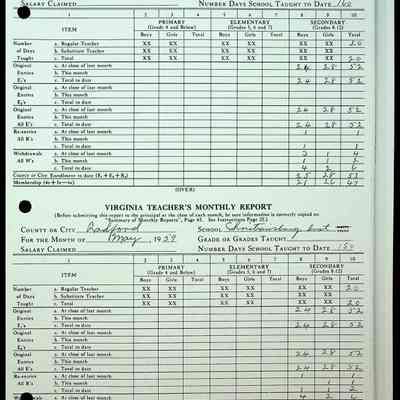 SALARY CLAIMED NUMBER DAYS SCHOOL TAUGHT TO DATE 160
1 2 3 4 5 6 7 8 9 10
ITEM PRIMARY (Grade 4 and Below) ELEMENTARY (Grades 5, 6 and 7) SECONDARY (Grades 8-12)
Boys Girls Total Boys Girls Total Boys Girls Total
Number a. Regular Teacher XX XX XX XX XX XX 20
of Days b. Substitute Teacher XX XX XX XX XX XX
Taught c. Total XX XX XX XX XX XX 20
Original a. At close of last month 24 28 52
Entries b. This month
E₁'s c. Total to date 24 28 52
Original a. At close of last month
Entries b. This month
E₂'s c. Total to date
Original a. At close of last month 24 28 52
Entries b. This month
All E's c. Total to date 24 28 52
Re-entries a. At close of last month 1 1
All R's b. This month
c. Total to date 1 1
Withdrawals a. At close of last month 3 1 4
All W's b. This month 1 1 2
c. Total to date 4 2 6
County or City Enrollment to date 25 28 53
Membership 21 26 47
(OVER)
VIRGINIA TEACHER'S MONTHLY REPORT
(Before submitting this report to the principal at the close of each month, be sure information is correctly copied to
"Summary of Monthly Reports", Page 45. See Instructions Page 2).)
COUNTY OR CITY Radford SCHOOL Christiansburg Inst
FOR THE MONTH OF May, 1959 GRADE OR GRADES TAUGHT
SALARY CLAIMED NUMBER DAYS SCHOOL TAUGHT TO DATE 180
1 2 3 4 5 6 7 8 9 10
ITEM PRIMARY (Grade 4 and Below) ELEMENTARY (Grades 5, 6 and 7) SECONDARY (Grades 8-12)
Boys Girls Total Boys Girls Total Boys Girls Total
Number a. Regular Teacher XX XX XX XX XX XX 20
of Days b. Substitute Teacher XX XX XX XX XX XX
Taught c. Total XX XX XX XX XX XX 20
Original a. At close of last month 24 28 52
Entries b. This month
E₁'s c. Total to date 24 28 52
Original a. At close of last month
Entries b. This month
E₂'s c. Total to date
Original a. At close of last month 24 28 52
Entries b. This month
All E's c. Total to date 24 28 52
Re-entries a. At close of last month 1 1
All R's b. This month 1 1
c. Total to date 1 1 2
a. At close of last month 4 2 6